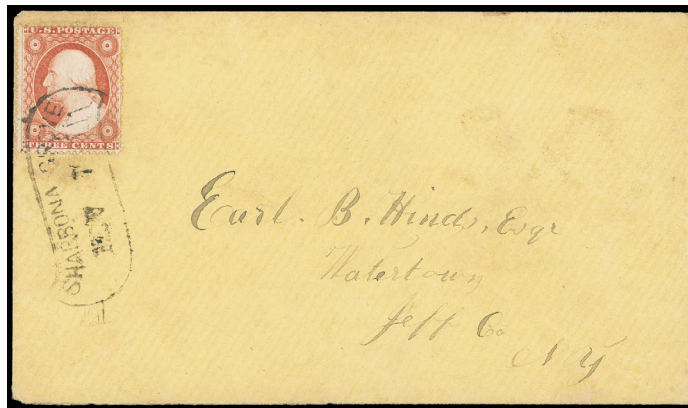 U.S. POSTAGE
THREE CENTS
SHABBONA GROVE
Earl. B. Hinds, Esqr
Watertown
Jeff Co
N Y